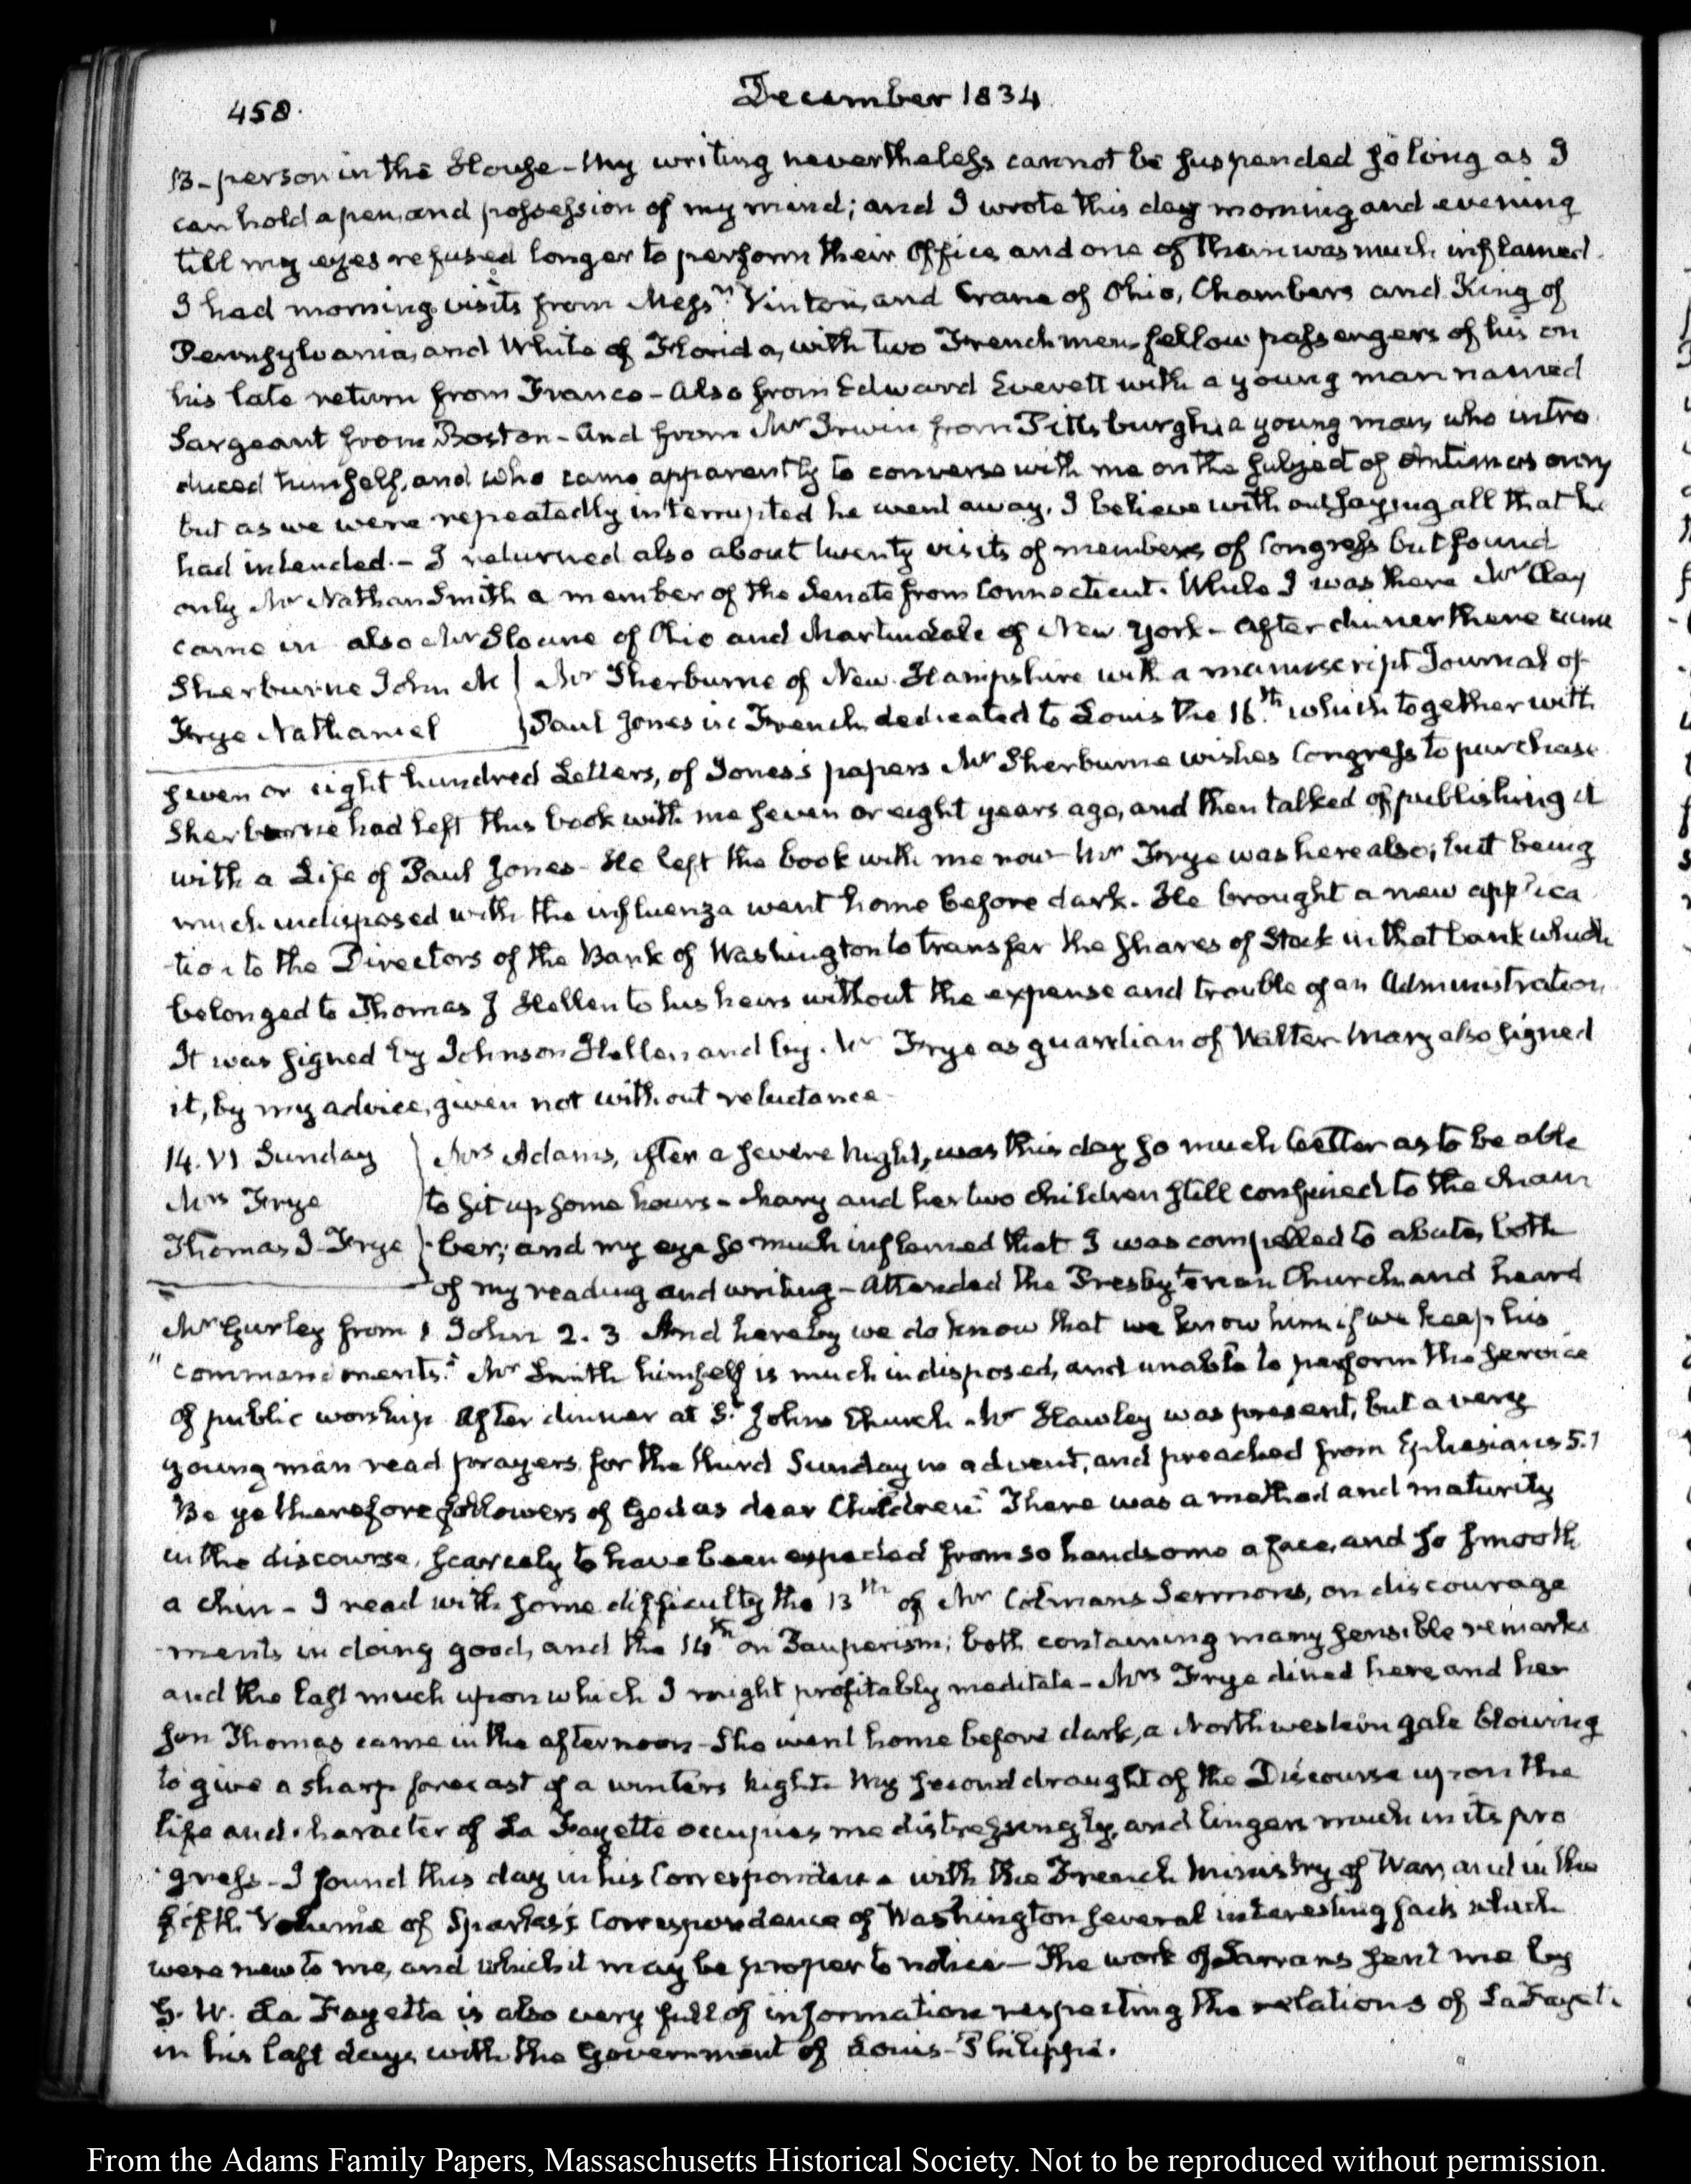 458.
December 1834.
13 - person in the House - My writing nevertheless cannot be suspended so long as I
can hold a pen, and possession of my mind; and I wrote this day morning and evening
till my eyes refused longer to perform their Office and one of them was much inflamed.
I had morning visits from Messrs Vinton, and Crane of Ohio, Chambers and King of
Pennsylvania, and White of Florida, with two Frenchmen, fellow passengers of his on
his late return from France - Also from Edward Everett with a young man named
Sargeant from Boston - And from Mr Irwin from Pittsburgh, a young man, who intro
duced himself, and who came apparently to converse with me on the subject of Antimasonry
but as we were repeatedly interrupted he went away, I believe without saying all that he
had intended. - I returned also about twenty visits of members of Congress but found
only Mr Nathan Smith a member of the Senate from Connecticut. While I was there Mr Clay
came in also Mr Sloane of Ohio and Martindale of New York - After dinner there came
Sherburne John M } Mr Sherburne of New Hampshire with a manuscript Journal of
Frye Nathaniel } Paul Jones in French, dedicated to Louis the 16.th which together with
seven or eight hundred Letters, of Jones's papers Mr Sherburne wishes Congress to purchase
Sherburne had left this book with me seven or eight years ago, and then talked of publishing it
with a Life of Paul Jones - He left the book with me now - Mr Frye was here also; but being
much indisposed with the influenza went home before dark. He brought a new applica
-tion to the Directors of the Bank of Washington to transfer the shares of Stock in that bank which
belonged to Thomas J Hellen to his heirs without the expense and trouble of an Administration
It was signed by Johnson Hellen and by Mr Frye as guardian of Walter - Mary also signed
it, by my advice, given not without reluctance.
14. VI Sunday } Mrs Adams, after a severe night, was this day so much better as to be able
Mrs Frye to sit up some hours - Mary and her two children still confined to the cham
Thomas J. Frye } -ber; and my eye so much inflamed that I was compelled to abate, both
of my reading and writing - Attended the Presbyterian Church and heard
Mr Gurley from 1 John 2. 3 And hereby we do know that we know him if we keep his
"commandments." Mr Smith himself is much indisposed, and unable to perform the service
of public worship. After dinner at St Johns Church Mr Hawley was present, but a very
young man read prayers, for the third Sunday in advent, and preached from Ephesians 5.1
Be ye therefore followers of God as dear Children." There was a method and maturity
in the discourse, scarcely to have been expected from so handsome a face, and so smooth
a chin - I read with some difficulty the 13th of Mr Colmans Sermons, on discourage
-ments in doing good, and the 14th on Pauperism; both containing many sensible remarks
and the last much upon which I might profitably meditate - Mrs Frye dined here, and her
son Thomas came in the afternoon - She went home before dark, a Northwestern gale blowing
to give a sharp forecast of a winters night - My second draught of the Discourse upon the
life and character of La Fayette occupies me distressingly, and lingers much in its pro
-gress - I found this day in his Correspondence with the French Ministry of War, and in the
fifth Volume of Sparks's Correspondence of Washington several interesting facts which
were new to me, and which it may be proper to notice - The work of Sarrans sent me by
G. W. La Fayette is also very full of information respecting the relations of La Fayette
in his last days with the Government of Louis-Philippe.
From the Adams Family Papers, Massaschusetts Historical Society. Not to be reproduced without permission.